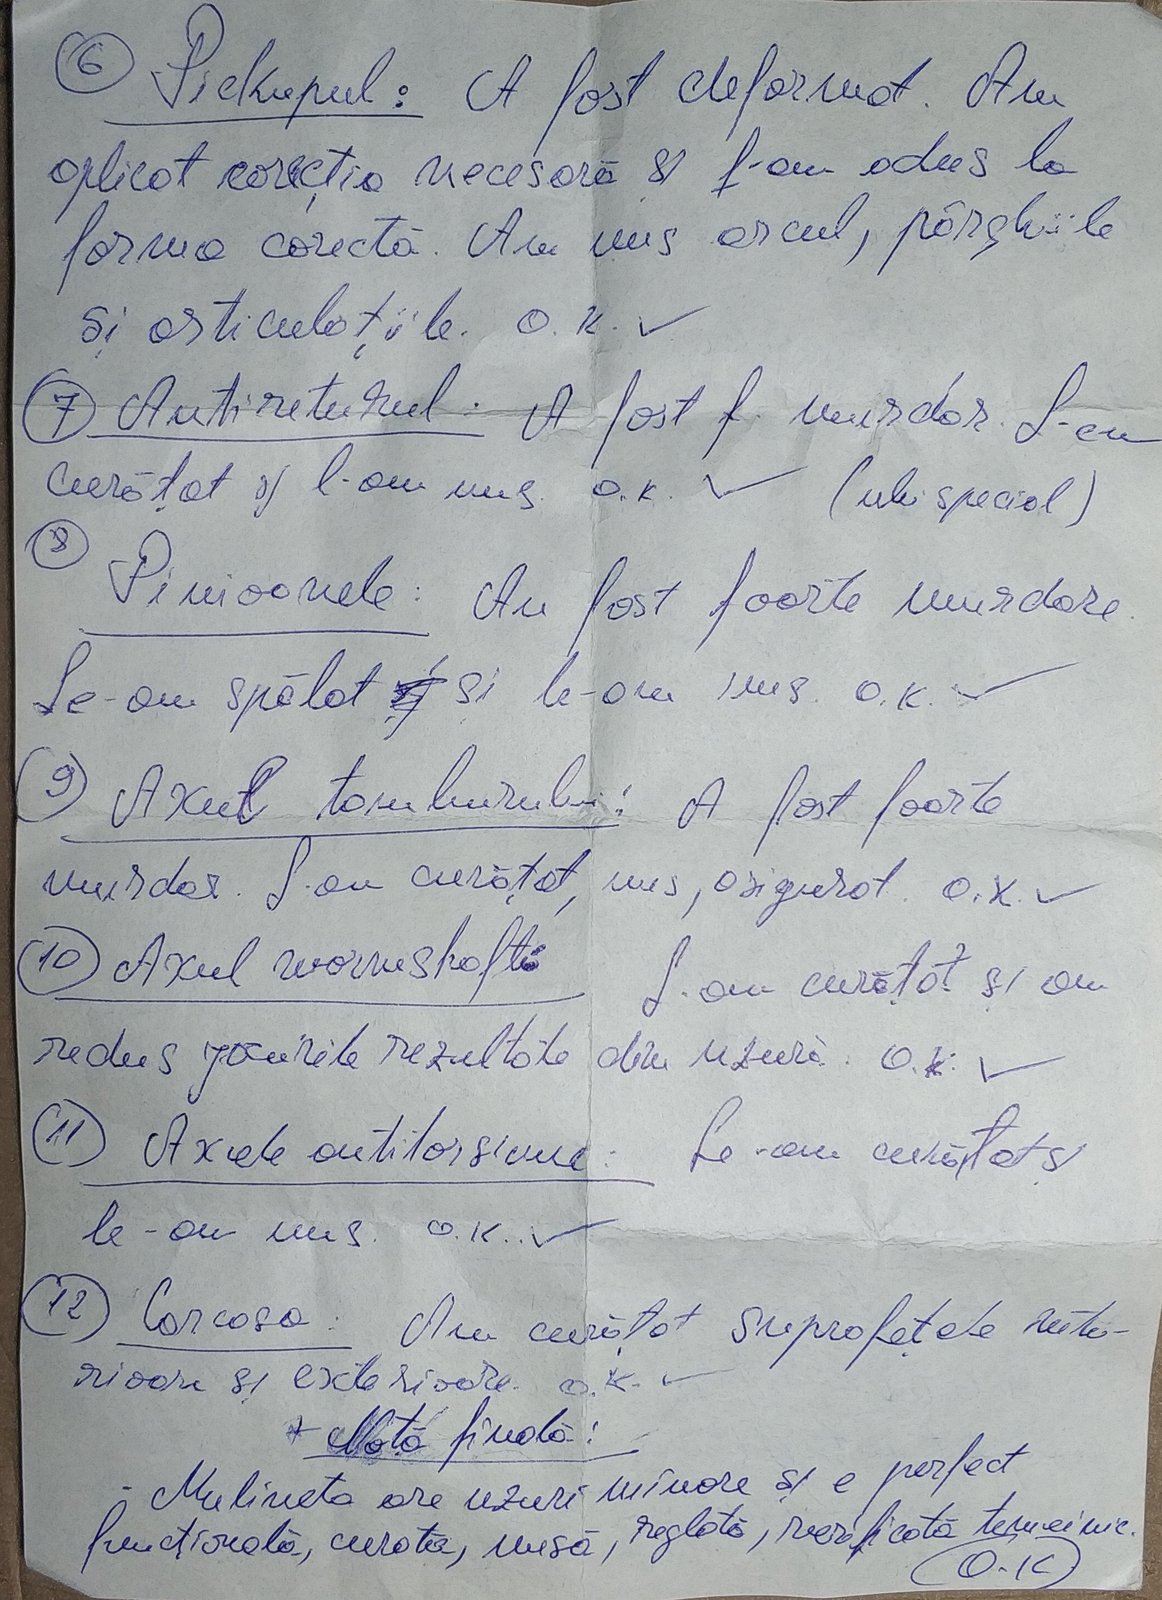 6 Pickupul: A fost deformat. Am
aplicat corecția necesară și l-am adus la
forma corectă. Am uns arcul, pârghiile
și articulațiile. O.K. ✓
7 Antireturul: A fost f. murdar. L-am
curățat și l-am uns. O.K. ✓ (ulei special)
8
Pinioanele: Au fost foarte murdare.
Le-am spălat și le-am uns. O.K. ✓
9 Axul tamburului: A fost foarte
murdar. L-am curățat, uns, asigurat. O.K. ✓
10 Axul wormshaft: L-am curățat și am
redus jocurile rezultate din uzură. O.K. ✓
11 Axele antitorsiune: Le-am curățat și
le-am uns. O.K. ✓
12 Carcasa: Am curățat suprafețele inte-
rioare și exterioare. O.K. ✓
* Notă finală:
- Mulineta are uzuri minore și e perfect
funcțională, curată, unsă, reglată, verificată temeinic.
O.K